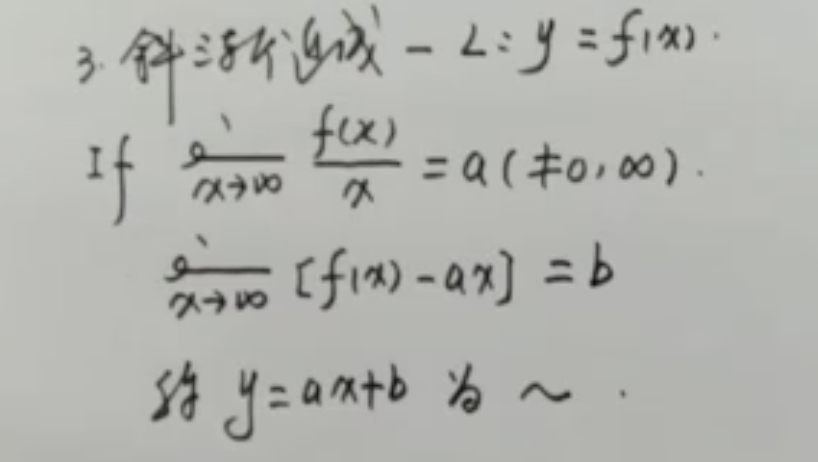 3. 斜渐近线 - L: y = f(x).
If lim x→∞ f(x)/x = a (≠0, ∞).
lim x→∞ [f(x) - ax] = b
称 y = ax+b 为 ~ .